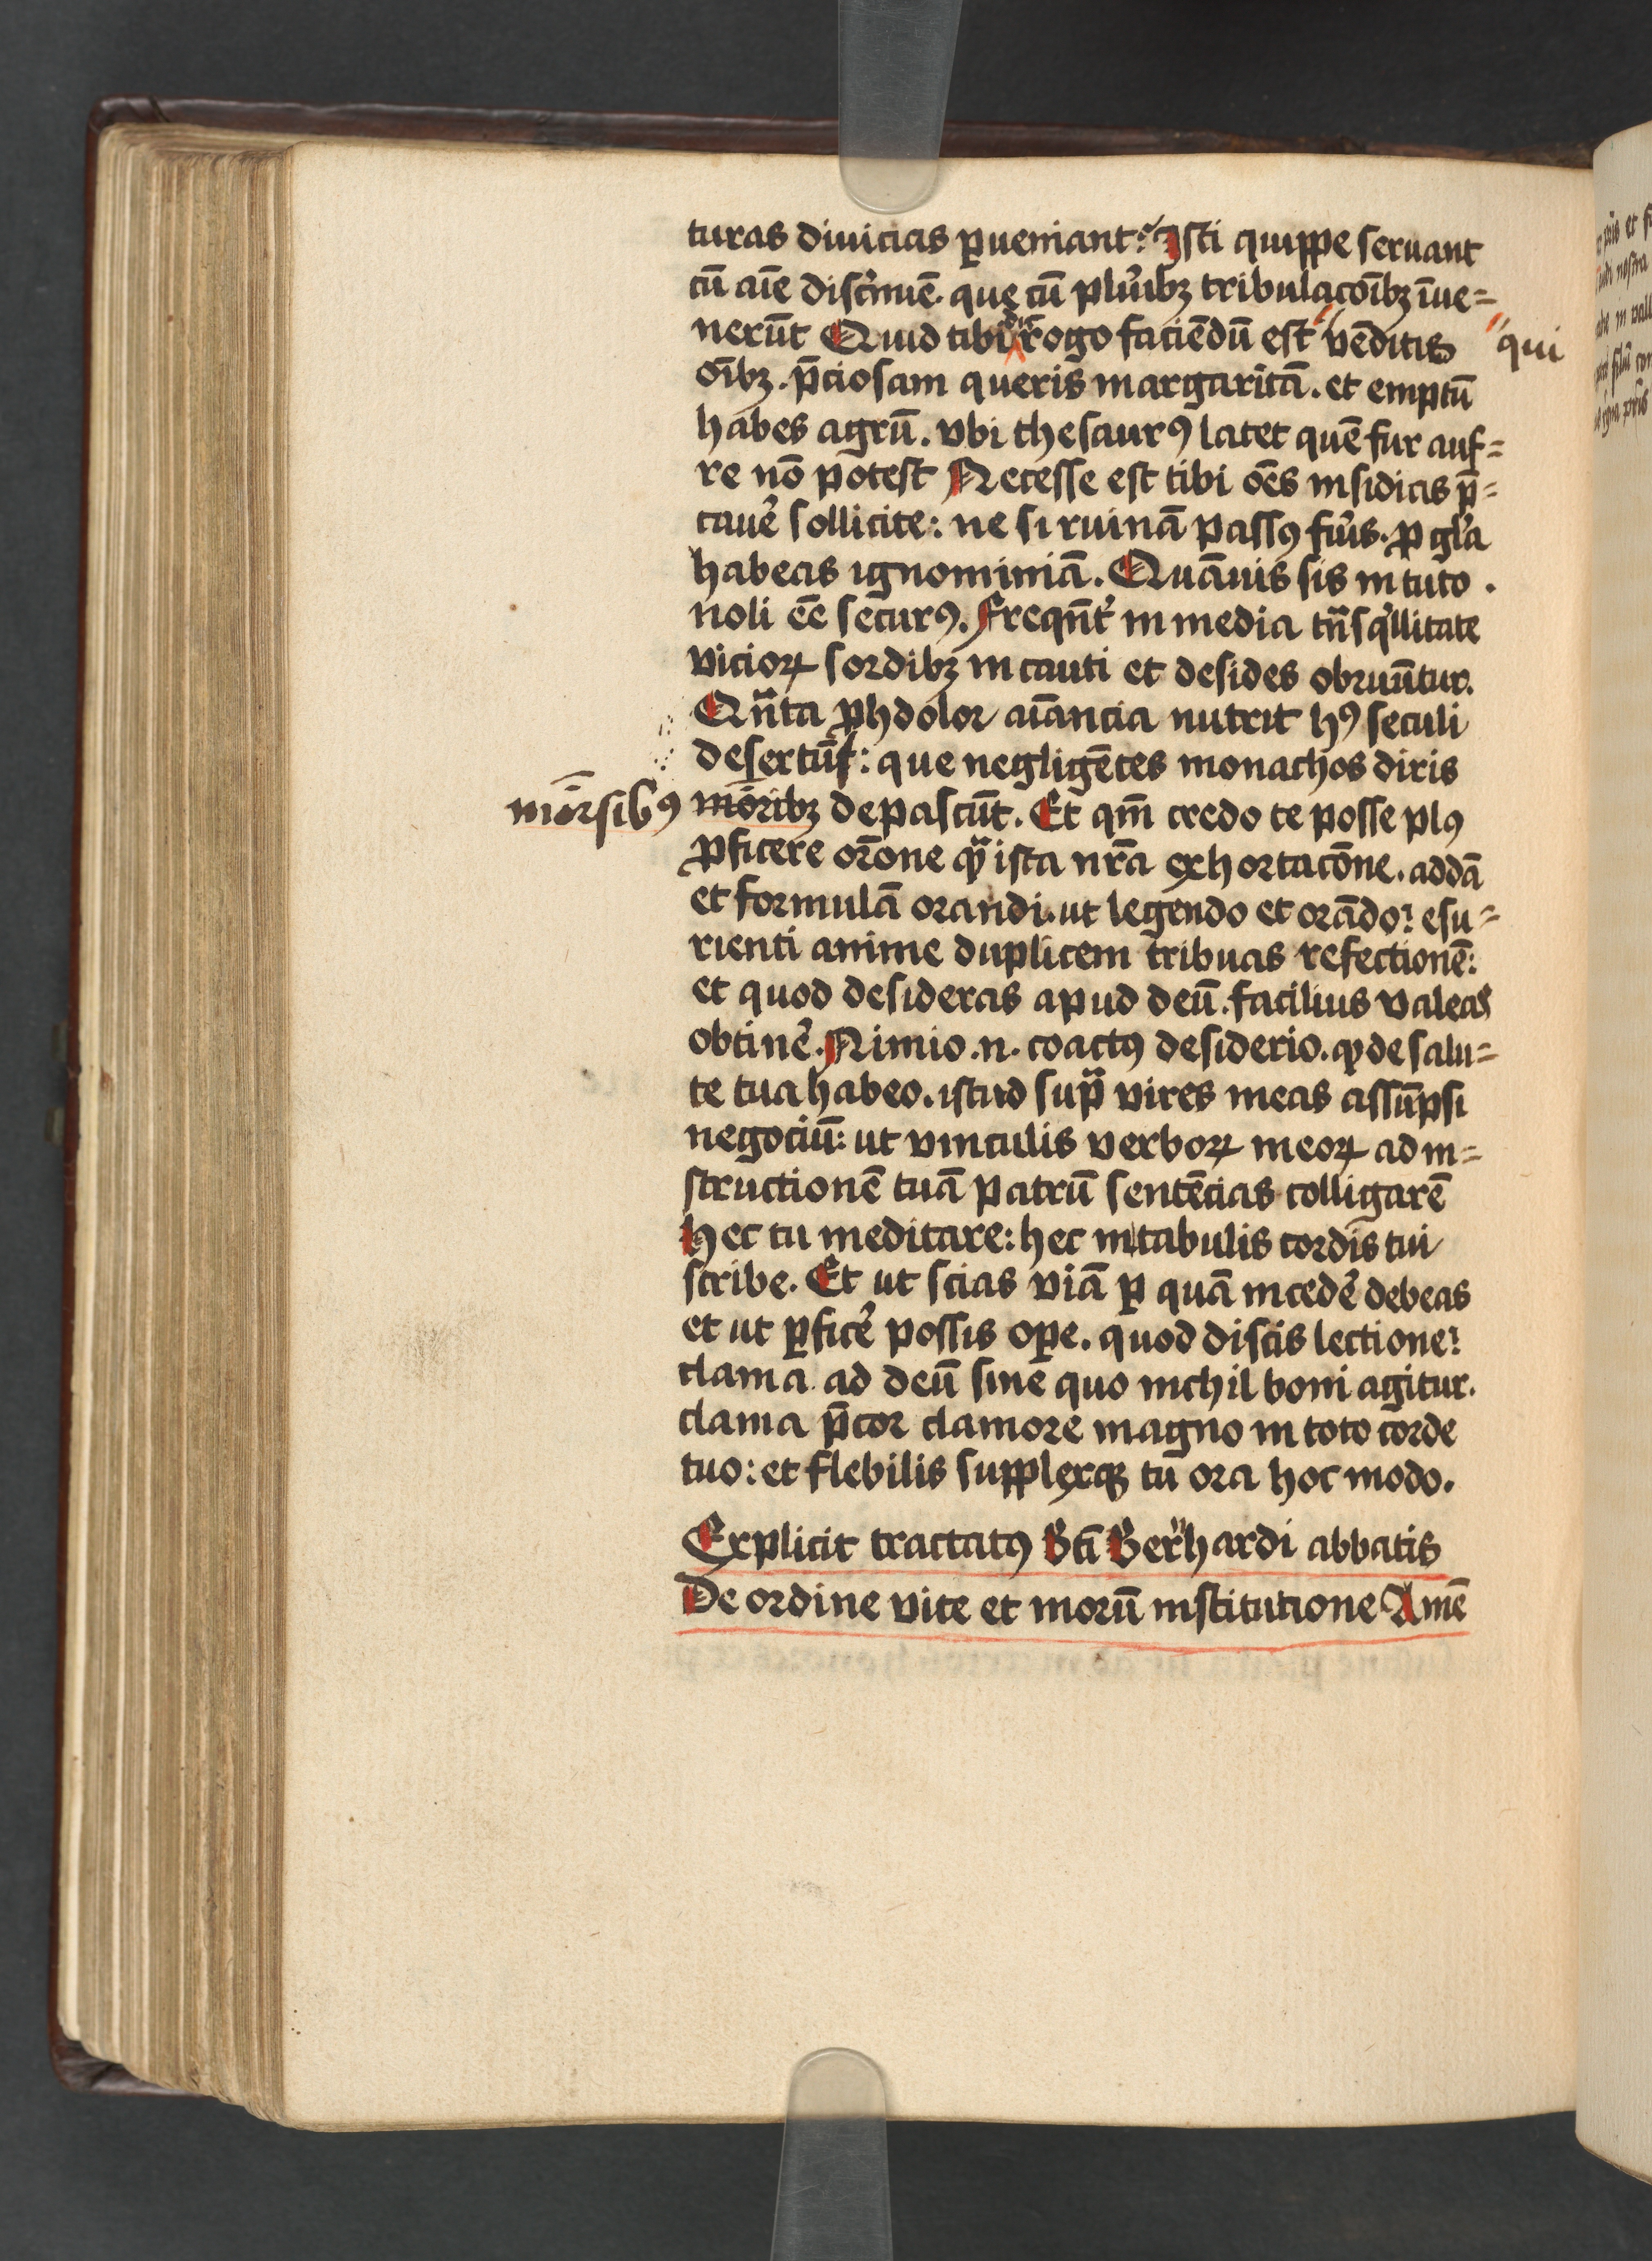 turas diuicias ꝑueniant? Isti quippe seruant
cū aīe discͥmīe. que cū plurͥibꝫ tribulacōībꝫ īue=
nerūt Quid tibi rogo faciēdū est vēditis qui
oībꝫ. p̄ciosam queris margaritā. et emptū
habes agrū. vbi thesaurꝰ latet quē fur auf=
re nō potest Necesse est tibi oēs insidias p̄=
cauē sollicite: ne si ruinā passꝰ fuͥis. ꝓ gl̓a
habeas ignominiā. Quāuis sis in tuto.
noli eē securꝰ. Freqn̄t̓ in media tn̄sqͥllitate
vicioꝝ sordibꝫ incauti et desides obruūtur.
Qn̄ta ꝓhdolor aīancia nutrit hꝰ seculi
desertū: que negligētes monachos diris
morsibꝰ moribꝫ depascūt. Et qm̄ credo te posse plꝰ
ꝓficere orōne qᷓ ista nr̄a exhortacōne. addā
et formulā orandi. ut legendo et orādo: esu=
rienti anime duplicem tribuas refectionē:
et quod desideras apud deū. facilius valeas
obtinē. Nimio .n. coactꝰ desiderio. ꝙ de salu=
te tua habeo. istud supᷓ vires meas assūpsi
negociū: ut vinculis verboꝝ meoꝝ ad in=
structionē tuā patrū sentēcias colligarē
Hec tu meditare: hec in tabulis cordis tui
scribe. Et ut scias viā ꝑ quā incedē debeas
et ut ꝑficē possis oꝑe. quod discis lectione:
clama ad deū sine quo nichil boni agitur.
clama p̄cor clamore magno in toto corde
tuo: et flebilis supplexqꝫ tū ora hoc modo.
Explicit tractatꝰ Bti̅ Bern̄hardi abbatis
De ordine vite et morū institutione Amē